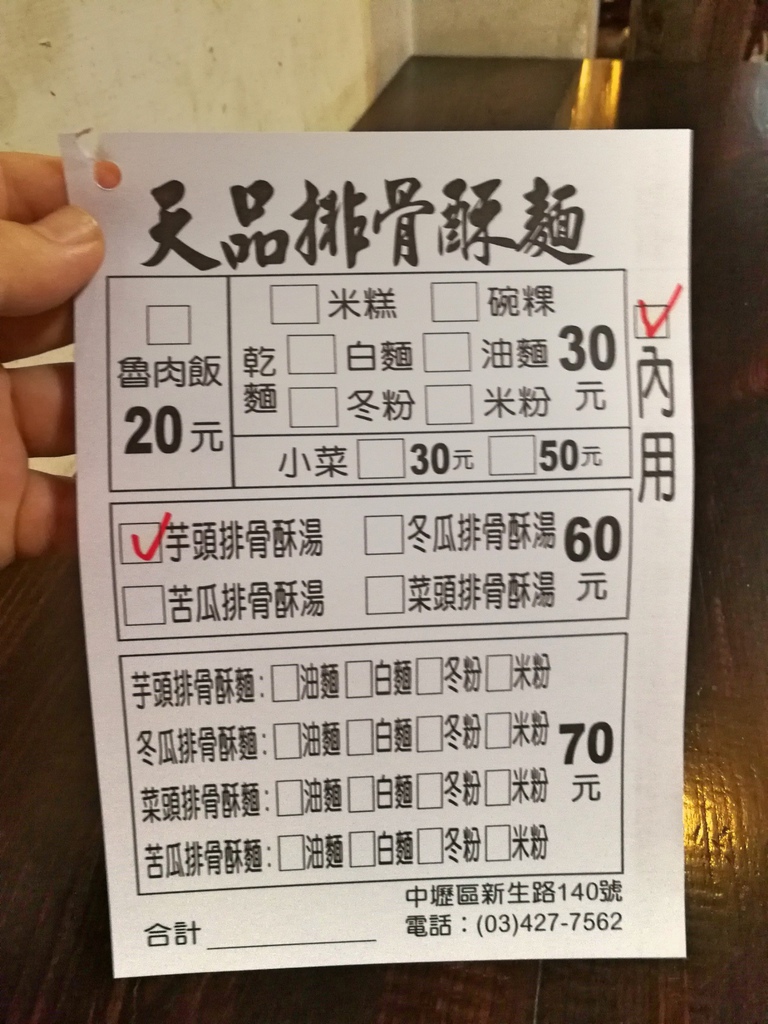 天品排骨酥麵
內用
魯肉飯
20元
米糕 碗粿
乾麵 白麵 油麵 30元
冬粉 米粉
小菜 30元 50元
芋頭排骨酥湯 冬瓜排骨酥湯 60元
苦瓜排骨酥湯 菜頭排骨酥湯
芋頭排骨酥麵: 油麵 白麵 冬粉 米粉
冬瓜排骨酥麵: 油麵 白麵 冬粉 米粉 70元
菜頭排骨酥麵: 油麵 白麵 冬粉 米粉
苦瓜排骨酥麵: 油麵 白麵 冬粉 米粉
中壢區新生路140號
合計 電話：(03)427-7562